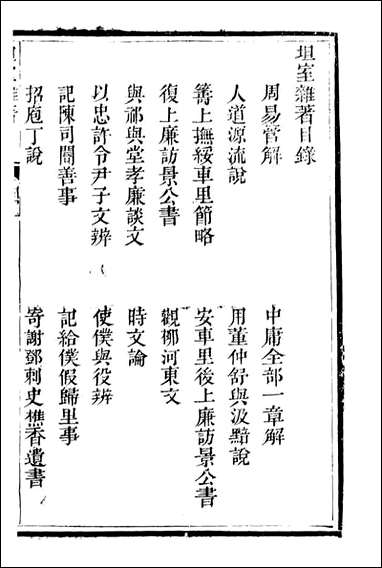 坦室雜著目錄
周易管解
中庸全部一章解
人道源流說
用董仲舒與汲黯說
籌上撫綏車里節略
安車里後上廉訪景公書
復上廉訪景公書
觀柳河東文
與祁與堂孝廉談文
時文論
以忠許令尹子文辨
使僕與役辨
記陳司閽善事
記給僕假歸里事
招庖丁說
寄謝鄧刺史樵香遺書